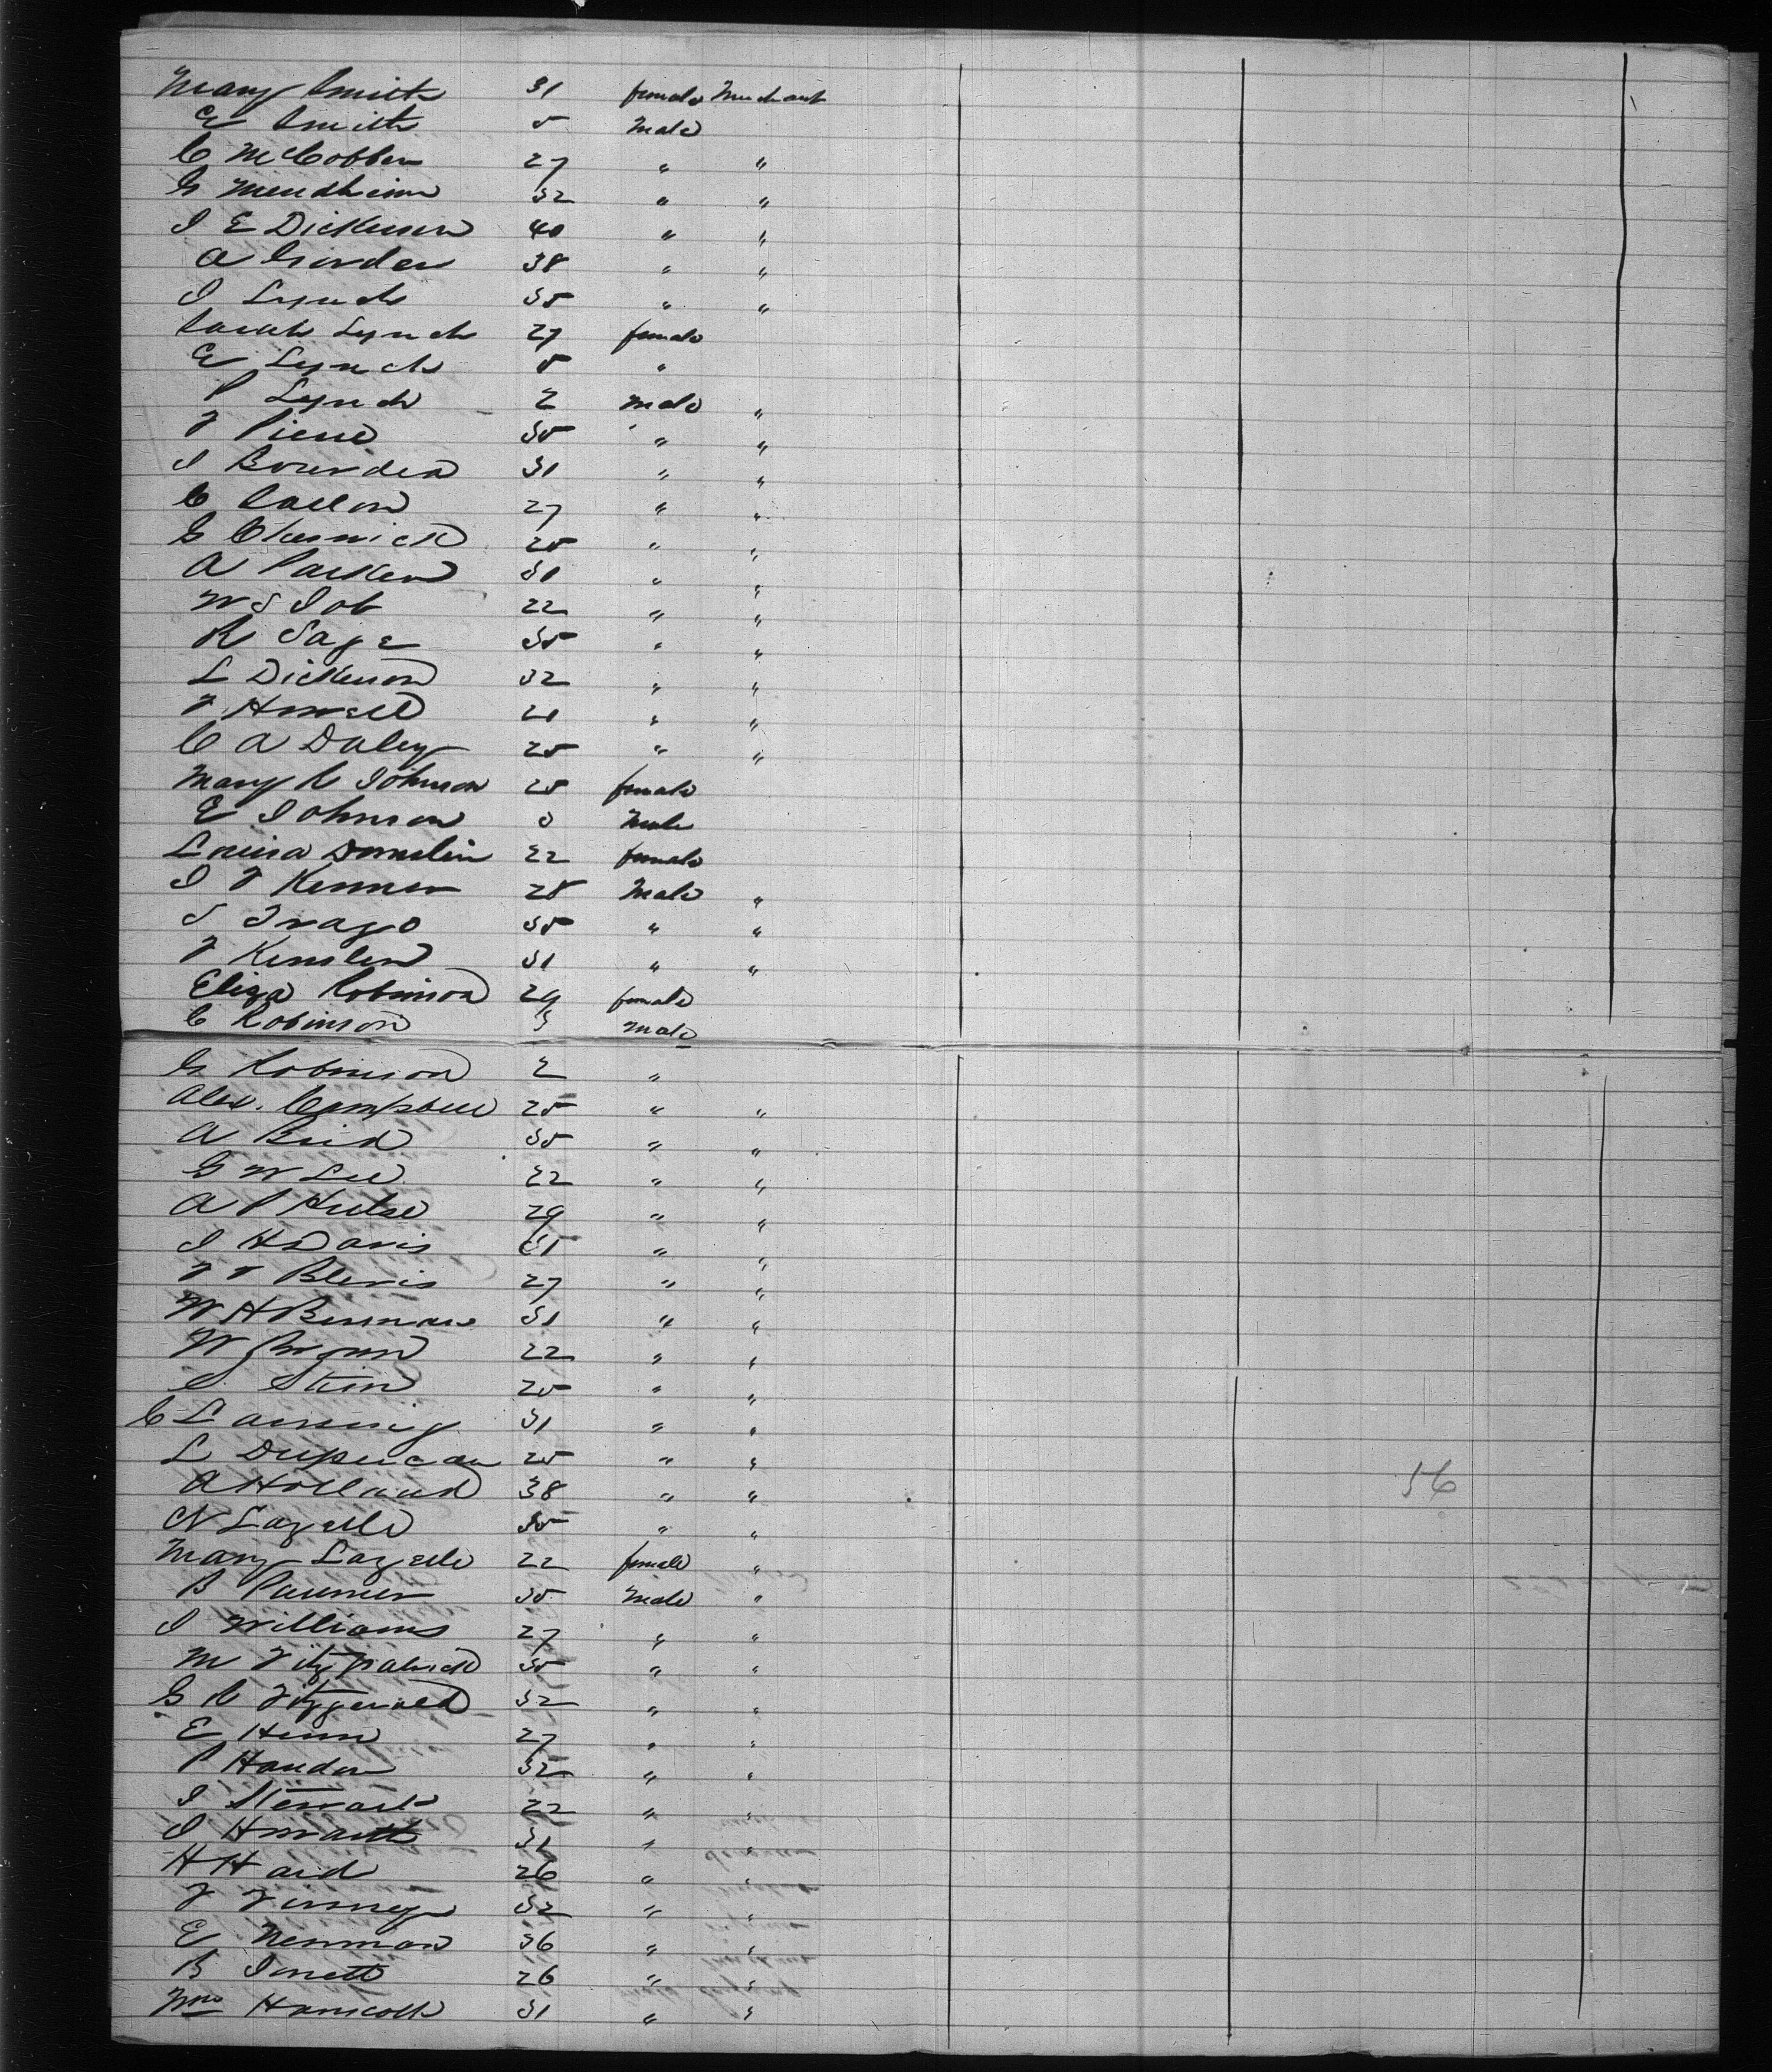 Mary Smith 31 female Merchant
E Smith 5 Male
C McCobben 27 " "
G Mendheim 32 " "
J E Dickerson 40 " "
A Gordon 38 " "
J Lynch 35 " "
Sarah Lynch 27 female
E Lynch 5 "
P Lynch 2 Male "
F Pierre 35 " "
J Bowden 31 " "
C 27 " "
G 25 " "
A Parker 31 " "
W S Job 22 " "
R Sage 35 " "
L Dickerson 32 " "
F Howell " "
C A Daley 25 " "
Mary R Johnson 25 female
E Johnson 3 Male
Louisa 22 female
J F Kenner 28 Male "
S Trago 35 " "
F 31 " "
Eliza Robinson 29 female
C Robinson 3 Male
G Robinson 2 "
Alex. Campbell 25 " "
A Reid 35 " "
G W Lee 22 " "
A P Hulse 29 " "
J H Davis 31 " "
F F Blevis 27 " "
W H 31 " "
W Brown 22 " "
S. Stein 25 " "
C Lansing 31 " "
L 25 " "
A Holland 38 " "
N Lazelle 35 " "
Mary Lazelle 22 female "
B 35 Male "
J Williams 27 " "
M Fitzpatrick 35 " "
G R Fitzgerald 32 " "
E Henn 27 " "
P 32 " "
J Stewart 22 " "
J Howarth 31 " "
H Haid 26 " "
F Finney 32 " "
E Newman 36 " "
B 26 " "
Wm Hancock 31 " "
56